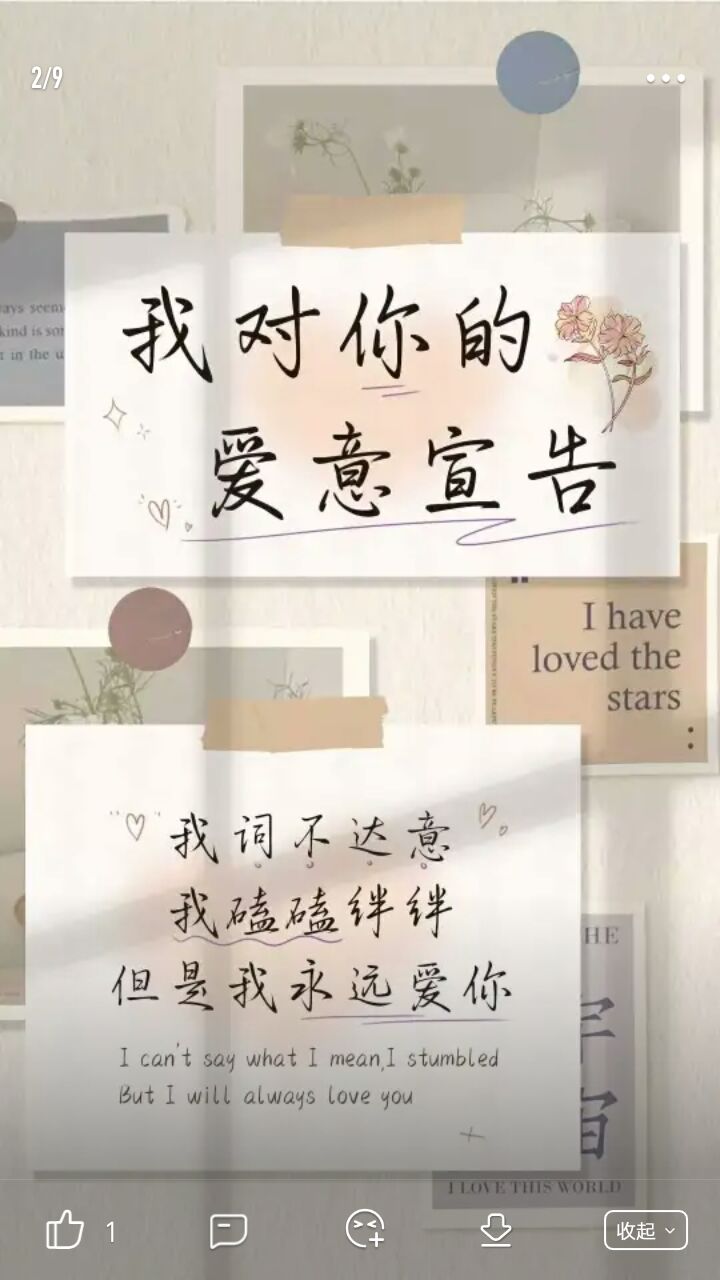 2/9
ways seem
kind is sor
t in the u
我对你的
爱意宣告
I have
loved the
stars
我词不达意
我磕磕绊绊
但是我永远爱你
I can't say what I mean,I stumbled
But I will always love you
HE
宇
宙
I LOVE THIS WORLD
1
收起